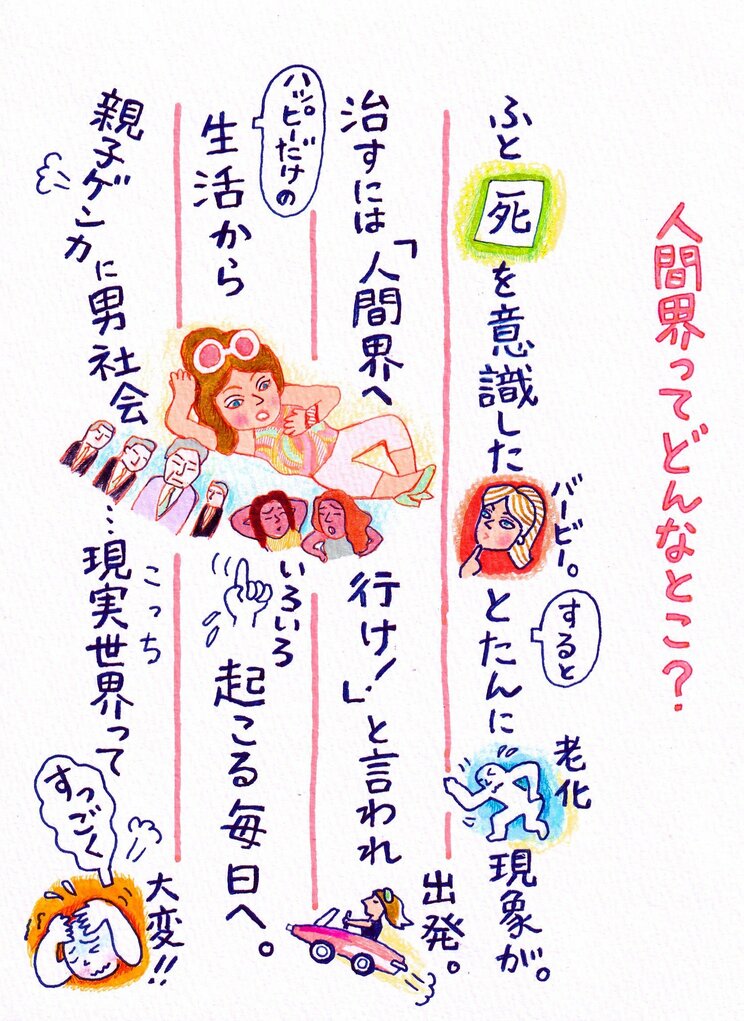 人間界ってどんなとこ?
ふと死を意識したバービー。するととたんに老化現象が。
治すには「人間界へ行け!」と言われ出発。
ハッピーだけの生活からいろいろ起こる毎日へ。
親子ゲンカに男社会…現実世界ってこっちすっごく大変!!